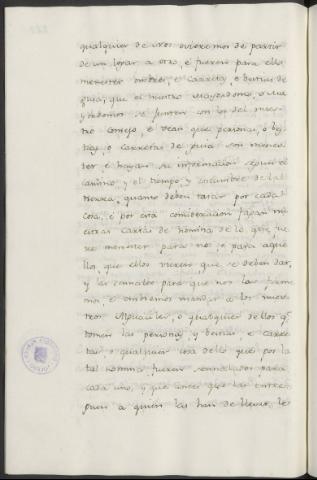 qualquier de nos oviéremos de partir
de un lugar a otro, e fueren para ello
menester ombres, e carretas, o bestias de
guia, que el nuestro Mayordomo, o Ma-
yordomos se junten con los del nues-
tro consejo, e vean que personas, o bes-
tias, o carretas de guia son menes-
ter, e hayan su informacion segun el
camino, y el tiempo, y costumbre de la
tierra, quanto deben tasar por cada
cosa, e por esta consideracion fagan nu-
estras cartas de nomina de lo que fue-
re menester para nos o para aque-
llos que ellos vieren que se deben dar,
y las señalen para que nos las firme-
mos, e embiemos mandar a los nues-
tros Alguaciles, o qualquier de ellos q.
tomen las personas, y bestias, e carre-
tas, o qualquier cosa dello que por la
tal nomina fueren señaladas para
cada uno, y que antes que las entre-
guen a quien las han de llevar, le